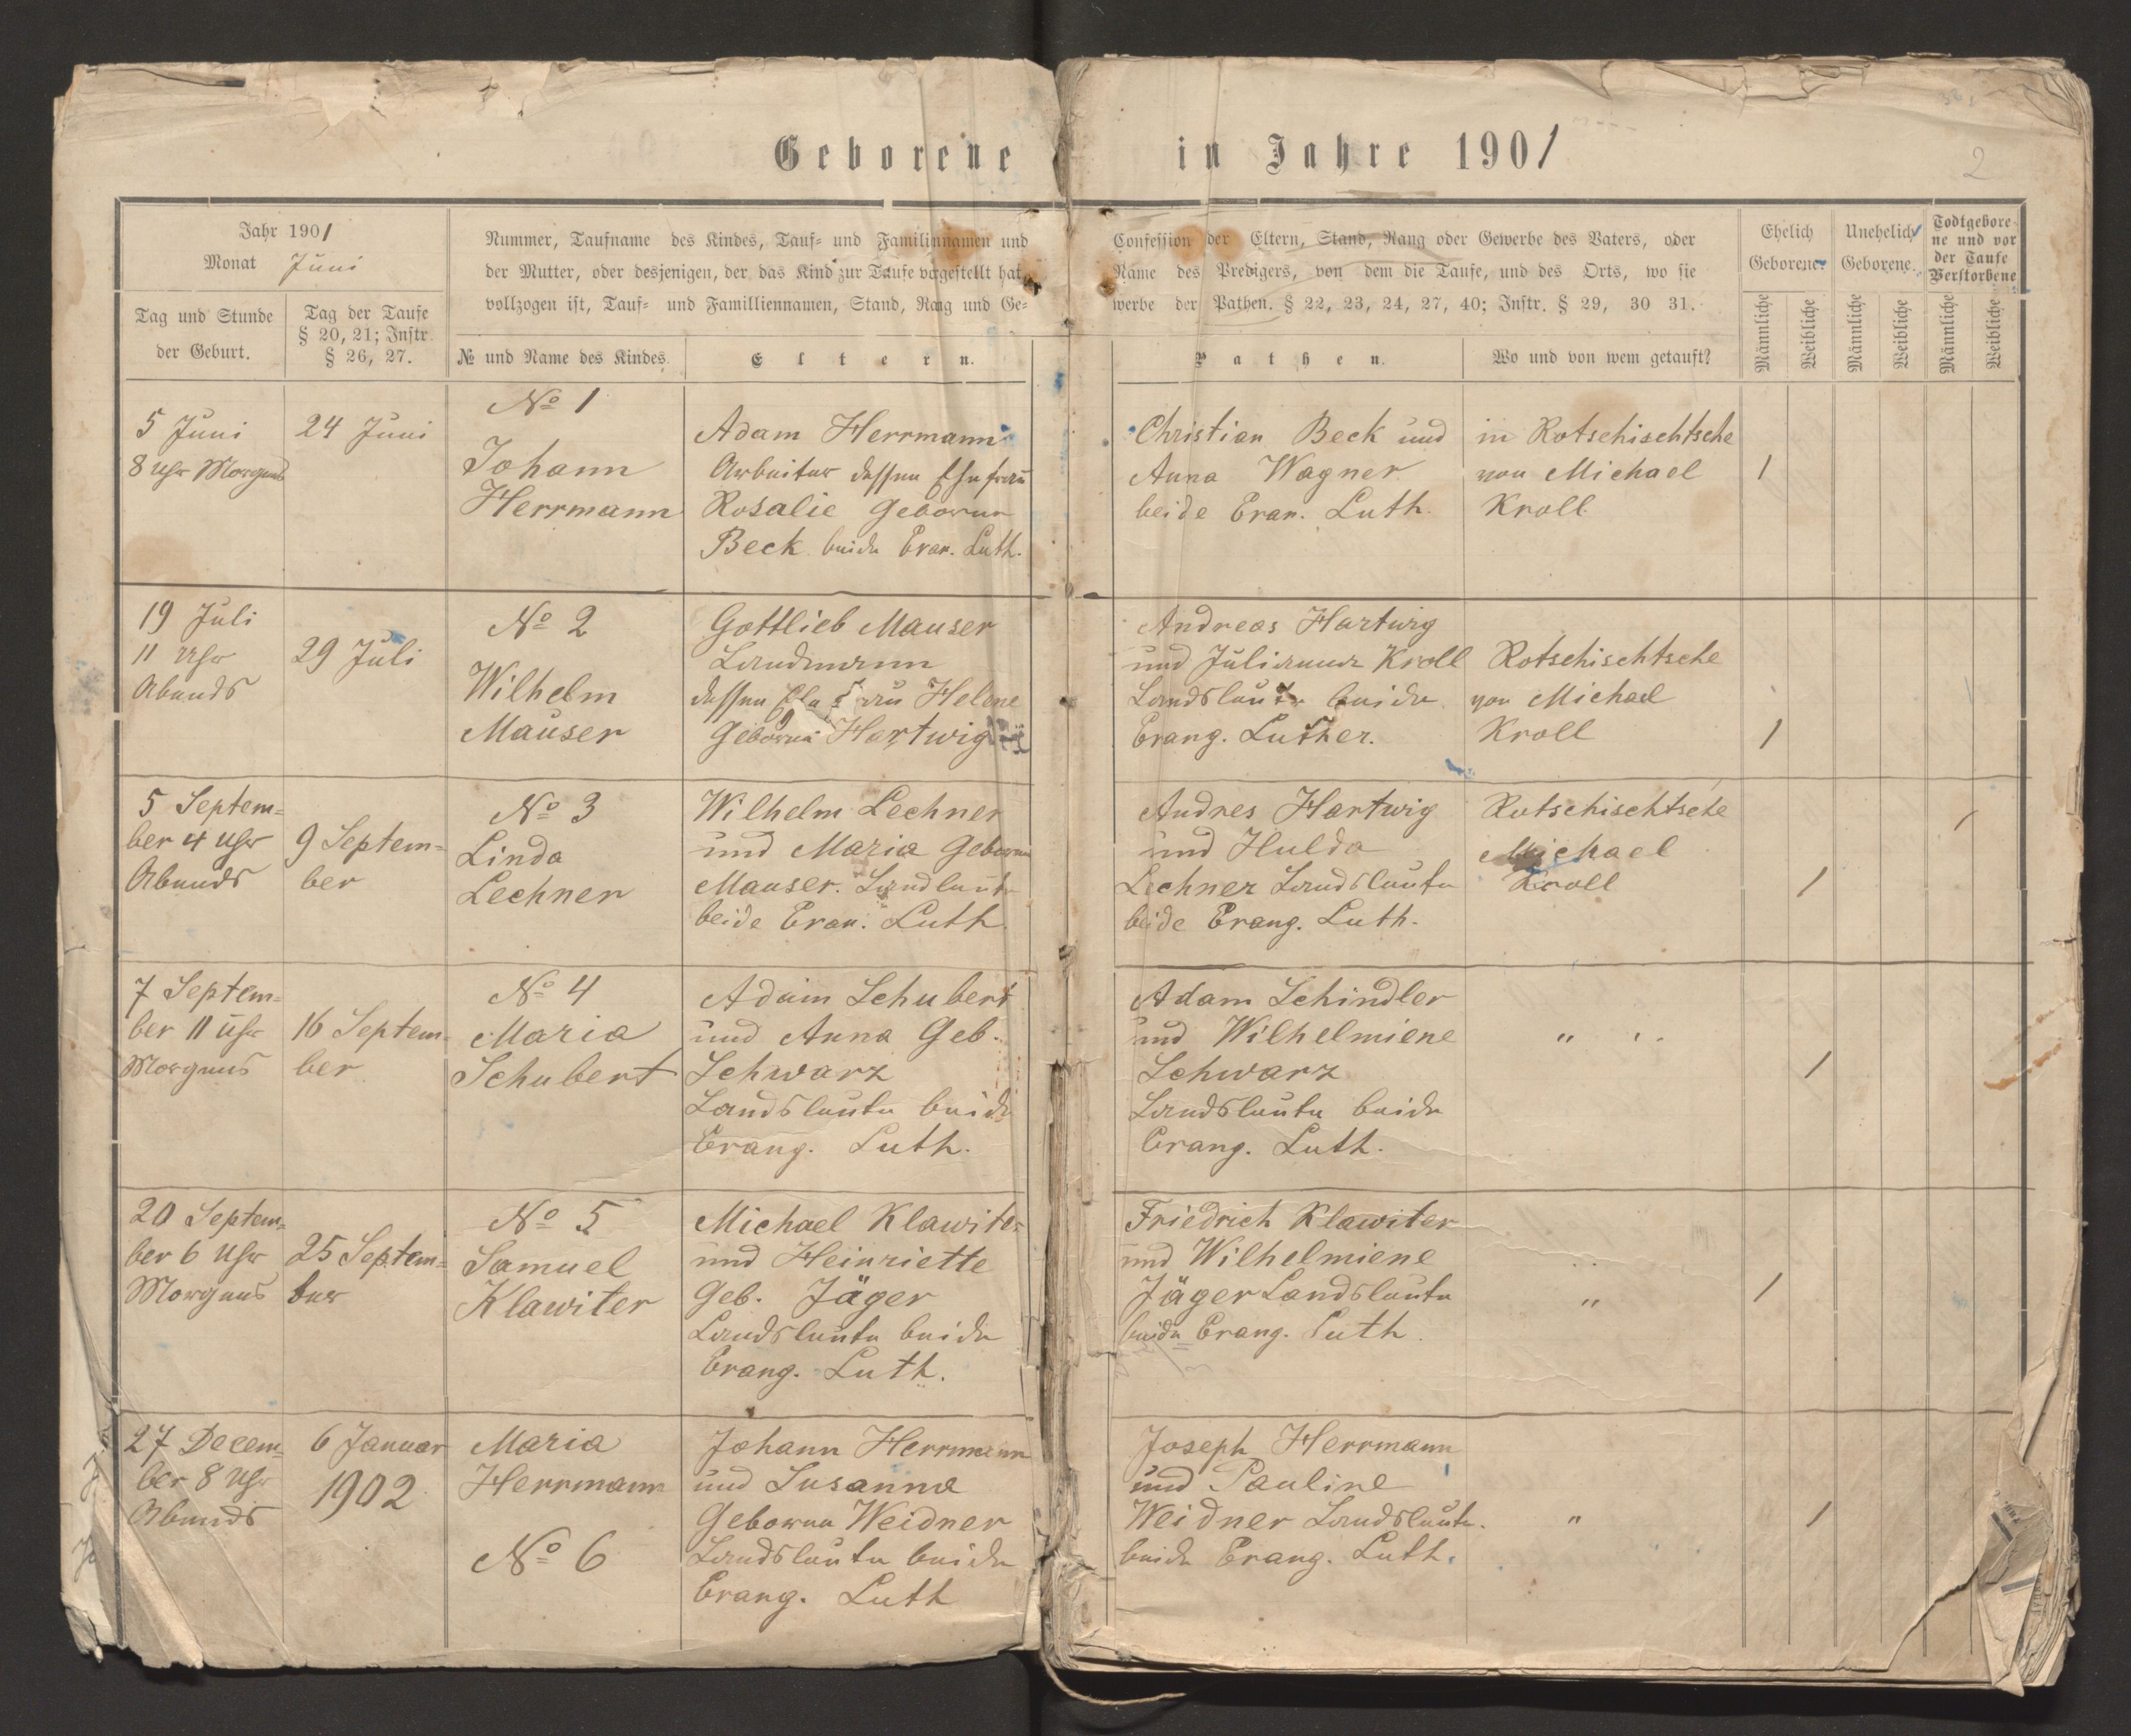 Geborene in Jahre 1901
2
Jahr 1901
Monat Juni
Tag und Stunde
der Geburt.
Tag der Taufe
§ 20, 21; Instr.
§ 26, 27.
Nummer, Taufname des Kindes, Tauf- und Familiennamen und
der Mutter, oder desjenigen, der das Kind zur Taufe vorgestellt hat,
vollzogen ist, Tauf- und Familliennamen, Stand, Rang und Ge-
№ und Name des Kindes.
Eltern.
Confession der Eltern, Stand, Rang oder Gewerbe des Vaters, oder
Name des Predigers, von dem die Taufe, und des Orts, wo sie
werbe der Pathen. § 22, 23, 24, 27, 40; Instr. § 29, 30 31.
Pathen.
Wo und von wem getauft?
Ehelich
Geborene.
Unehelich
Geborene.
Todtgebore-
ne und vor
der Taufe
Verstorbene
Männliche
Weibliche
Männliche
Weibliche
Männliche
Weibliche
5 Juni
8 Uhr Morgens
24 Juni
№ 1
Johann
Herrmann
Adam Herrmann
Arbeiter dessen Ehefrau
Rosalie Geborene
Beck beide Evan. Luth.
Christian Beck und
Anna Wagner
beide Evan. Luth.
in Rotschischtsche
von Michael
Kroll
1
19 Juli
11 Uhr
Abends
29 Juli
№ 2
Wilhelm
Mauser
Gottlieb Mauser
Landmann
dessen Ehefrau Helene
Geborene Hartwig
Andreas Hartwig
und Julianna Kroll
Landsleute beide
Evang. Luther.
Rotschischtsche
von Michael
Kroll
1
5 Septem=
ber 4 Uhr
Abends
9 Septem=
ber
№ 3
Linda
Lechner
Wilhelm Lechner
und Maria Geborene
Mauser. Landleute
beide Evan. Luth.
Andres Hartwig
und Hulda
Lechner Landsleute
beide Evang. Luth.
Rotschischtsche
Michael
Kroll
1
7 Septem=
ber 11 Uhr
Morgens
16 Septem=
ber
№ 4
Maria
Schubert
Adam Schubert
und Anna Geb.
Schwarz
Landsleute beide
Evang. Luth.
Adam Schindler
und Wilhelmiene
Schwarz
Landsleute beide
Evang. Luth.
"
1
20 Septem=
ber 6 Uhr
Morgens
25 Septem=
ber
№ 5
Samuel
Klawiter
Michael Klawiter
und Heinriette
Geb. Jäger
Landsleute beide
Evang. Luth.
Friedrich Klawiter
und Wilhelmiene
Jäger Landsleute
beide Evang. Luth.
"
1
27 Decem=
ber 8 Uhr
Abends
6 Januar
1902
Maria
Herrmann
№ 6
Johann Herrmann
und Susanna
Geborene Weidner
Landsleute beide
Evang. Luth
Joseph Herrmann
und Pauline
Weidner Landsleute
beide Evang. Luth.
"
1